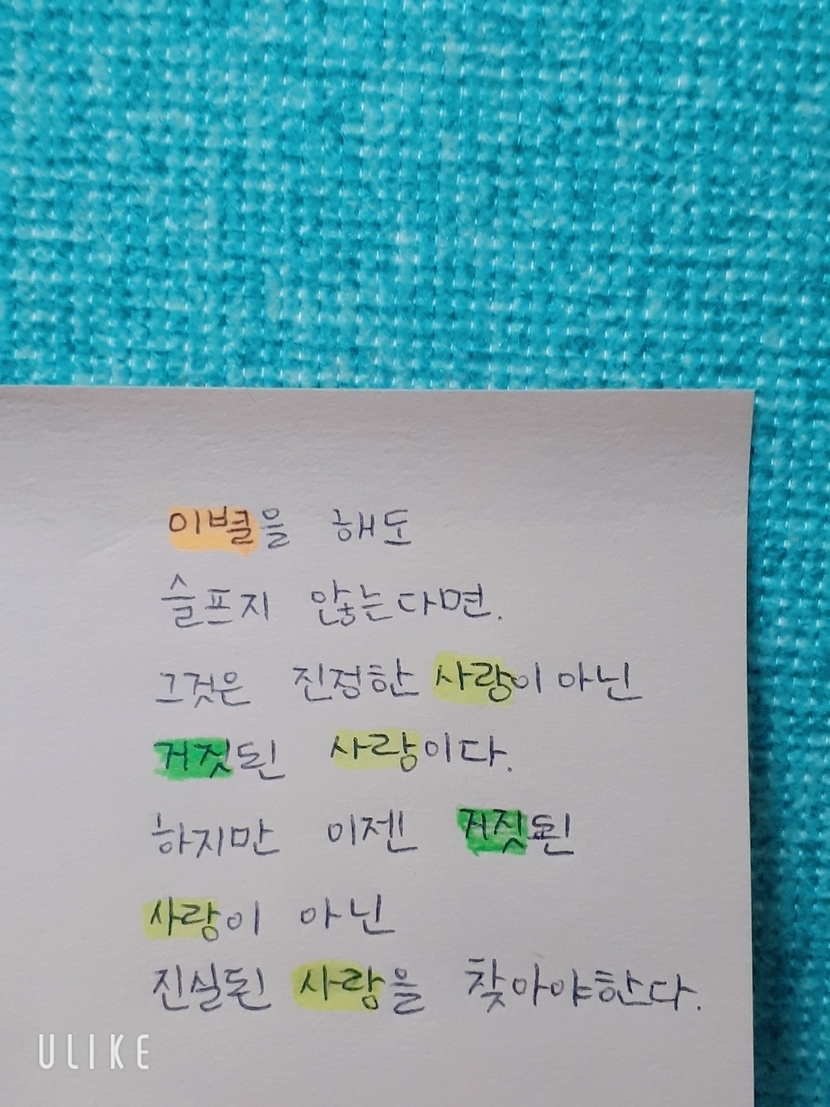 이별을 해도
슬프지 않는다면.
그것은 진정한 사랑이 아닌
거짓된 사랑이다.
하지만 이젠 거짓된
사랑이 아닌
진실된 사랑을 찾아야한다.
ULIKE